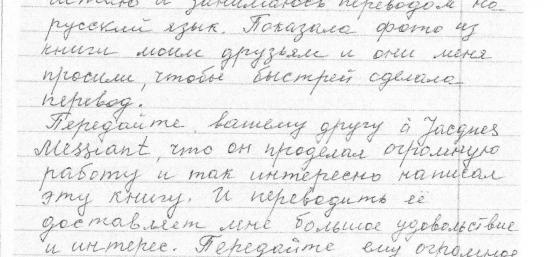 и занимаюсь переводом на
русский язык. Показала фото из
книги моим друзьям и они меня
просили, чтобы быстрей сделала
перевод.
Передайте вашему другу à Jacques
Messiant, что он проделал огромную
работу и так интересно написал
эту книгу. И переводить её
доставляет мне большое удовольствие
и интерес. Передайте ему огромное